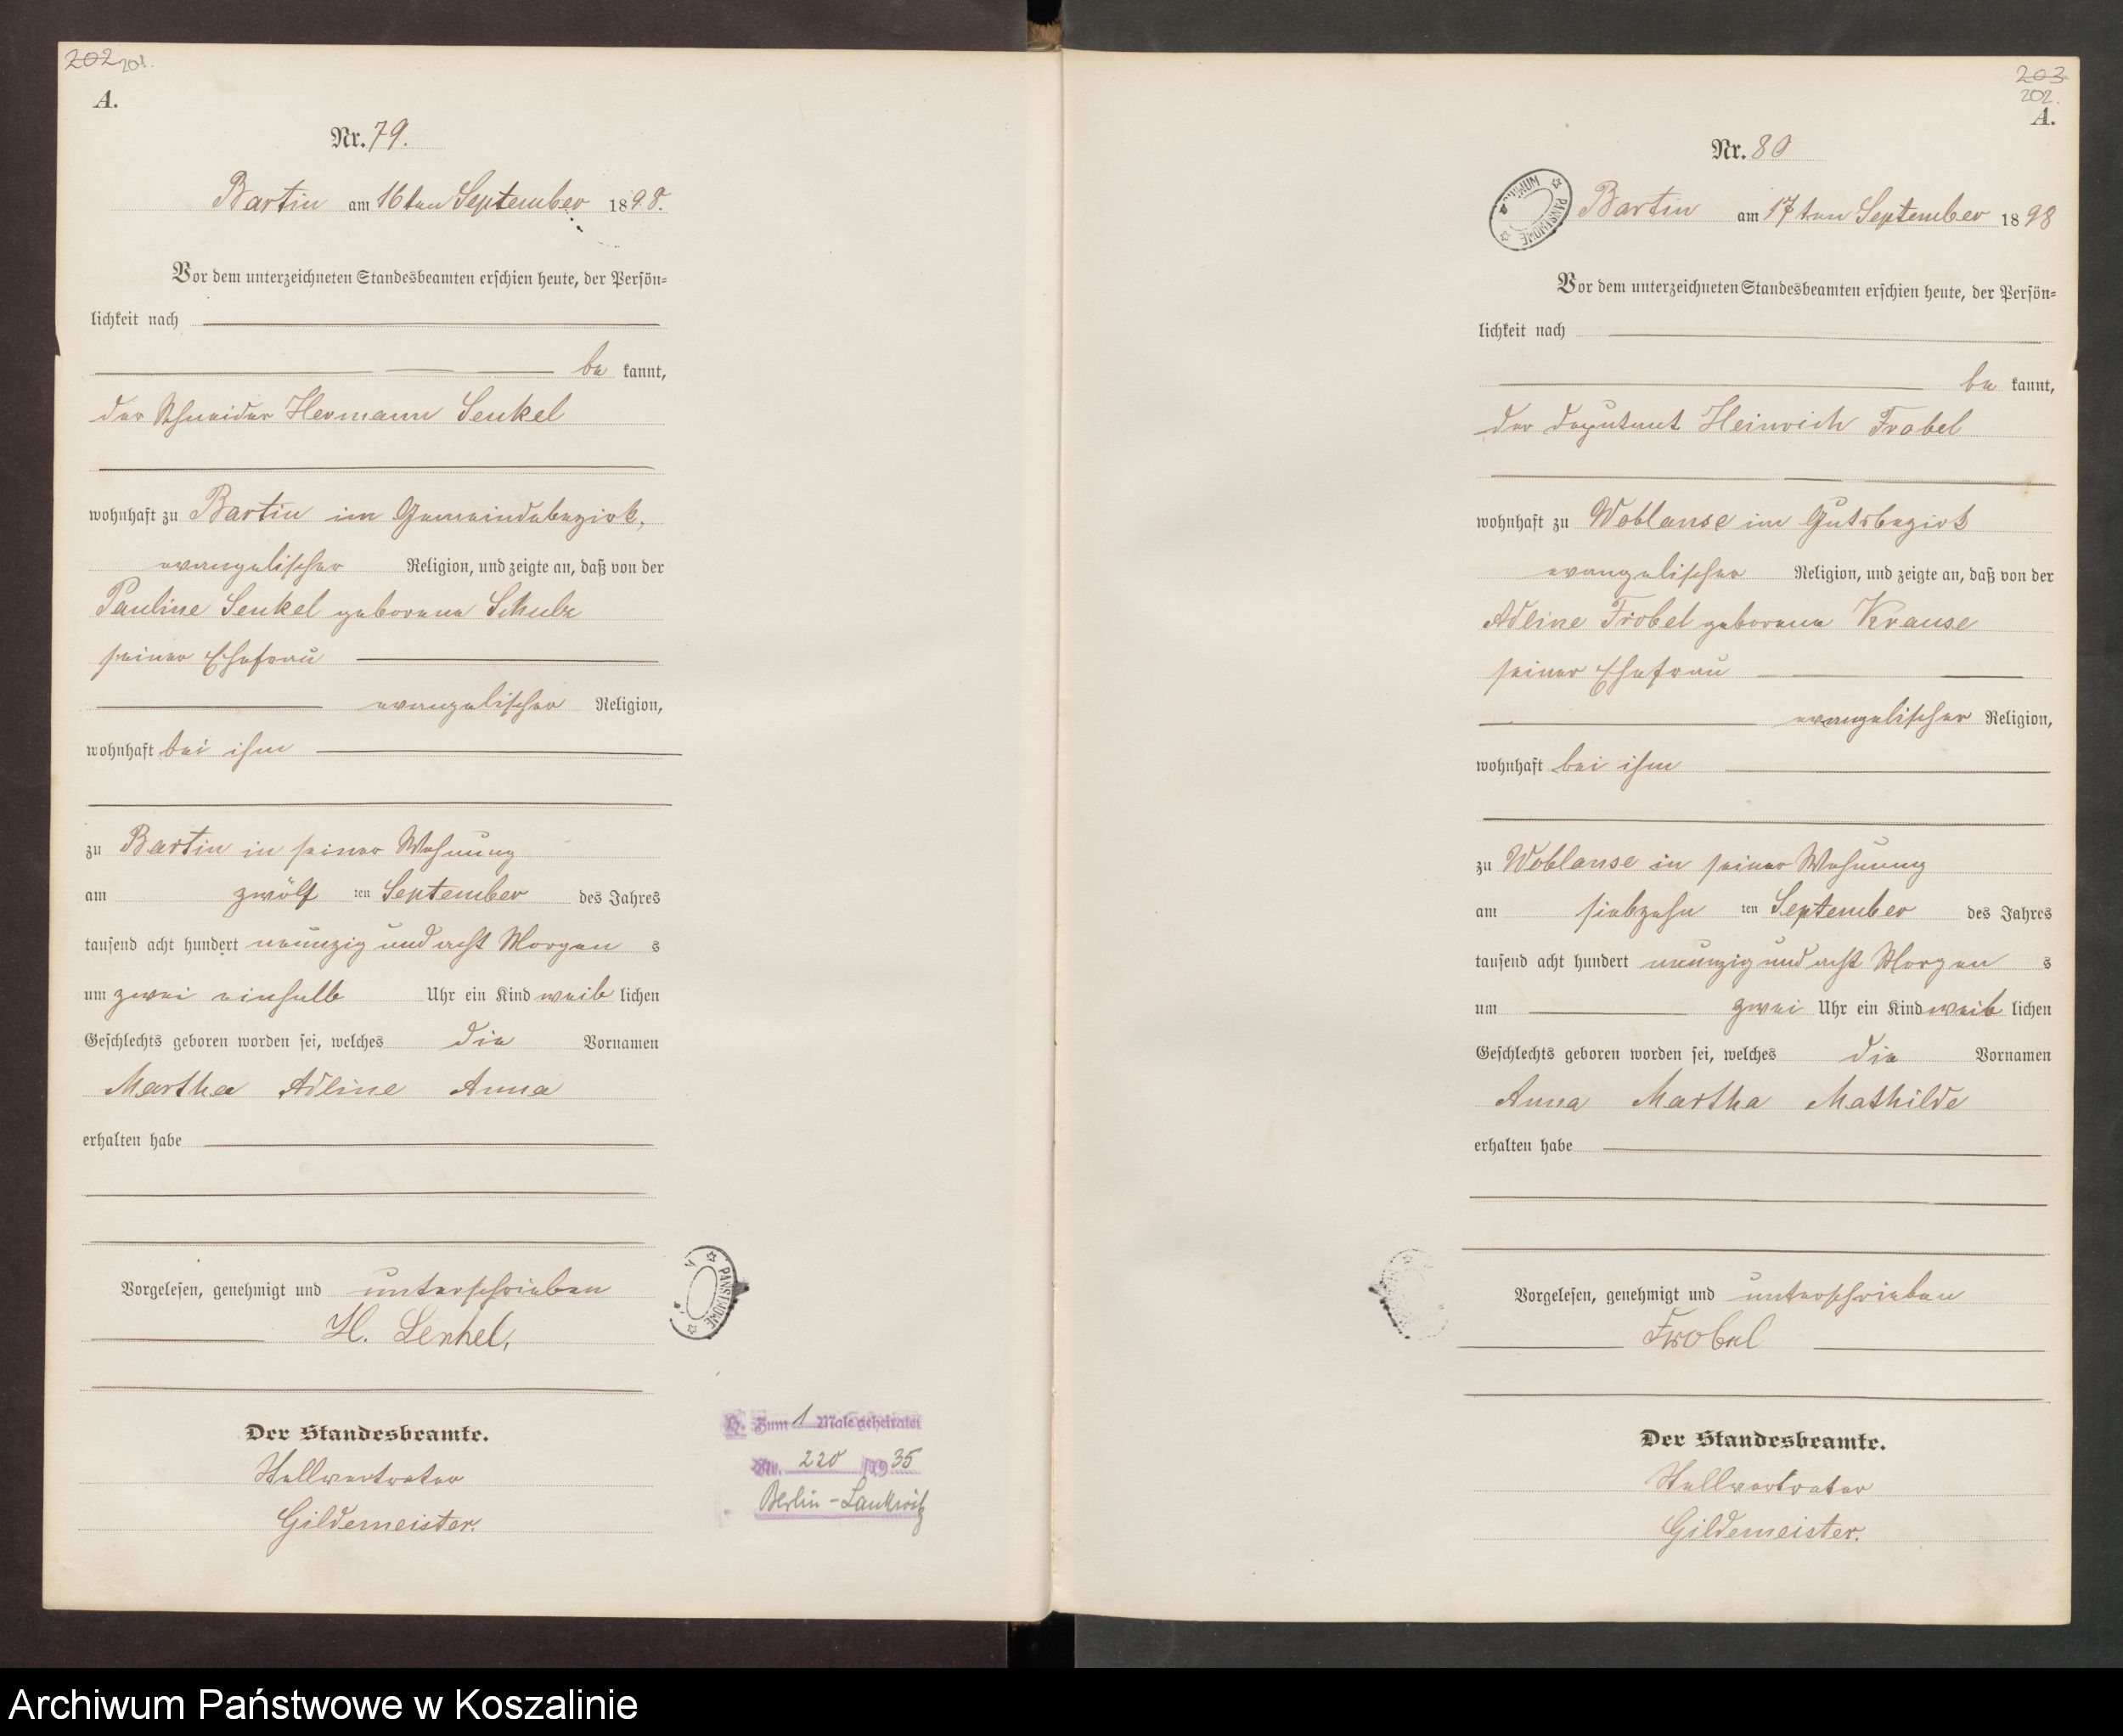 202 201.
A.
Nr. 79.
Bartin am 16ten September 1898.
Vor dem unterzeichneten Standesbeamten erschien heute, der Persön=
lichkeit nach
be kannt,
der Schneider Hermann Senkel
wohnhaft zu Bartin im Gemeindebezirk,
evangelischer Religion, und zeigte an, daß von der
Pauline Senkel geborene Schulz
seiner Ehefrau
evangelischer Religion,
wohnhaft bei ihm
zu Bartin in seiner Wohnung
am zwölf ten September des Jahres
tausend acht hundert neunzig und acht Morgen s
um zwei einhalb Uhr ein Kind weib lichen
Geschlechts geboren worden sei, welches die Vornamen
Martha Adline Anna
erhalten habe
Vorgelesen, genehmigt und unterschrieben
H. Senkel,
Der Standesbeamte.
Stellvertreter
Gildemeister.
PAŃSTWOWE
H. Zum 1 Male geheiratet
Nr. 220 1935
Berlin-Lankwitz
203
202.
A.
Nr. 80
ARCHIWUM PAŃSTWOWE
Bartin am 17ten September 1898
Vor dem unterzeichneten Standesbeamten erschien heute, der Persön=
lichkeit nach
be kannt,
der Deputant Heinrich Frobel
wohnhaft zu Woblanse im Gutsbezirk
evangelischer Religion, und zeigte an, daß von der
Adline Frobel geborene Krause
seiner Ehefrau
evangelischer Religion,
wohnhaft bei ihm
zu Woblanse in seiner Wohnung
am siebzehn ten September des Jahres
tausend acht hundert neunzig und acht Morgen s
um zwei Uhr ein Kind weib lichen
Geschlechts geboren worden sei, welches die Vornamen
Anna Martha Mathilde
erhalten habe
Vorgelesen, genehmigt und unterschrieben
Frobel
Der Standesbeamte.
Stellvertreter
Gildemeister.
Archiwum Państwowe w Koszalinie